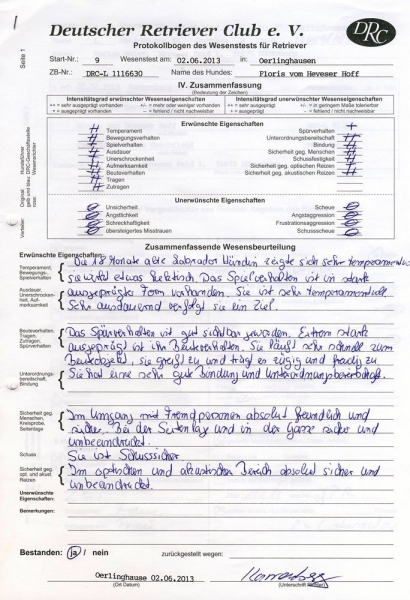 Deutscher Retriever Club e. V.
DRC
Protokollbogen des Wesenstests für Retriever
Seite 1
Start-Nr.: 9 Wesenstest am: 02.06.2013 in: Oerlinghausen
ZB-Nr.: DRC-L 1116630 Name des Hundes: Floris vom Heveser Hoff
IV. Zusammenfassung
(Bedeutung der Zeichen)
Intensitätsgrad erwünschter Wesenseigenschaften
Intensitätsgrad unerwünschter Wesenseigenschaften
++ = sehr ausgeprägt vorhanden +/- = mehr oder weniger vorhanden
++ = sehr ausgeprägt vorhanden +/- = in geringem Maße tolerierbar
+ = ausgeprägt vorhanden – = fehlend / nicht nachweisbar
+ = ausgeprägt vorhanden – = fehlend / nicht nachweisbar
Erwünschte Eigenschaften
Temperament
Spürverhalten +
Bewegungsverhalten
Unterordnungsbereitschaft
Spielverhalten
Bindung
Ausdauer
Sicherheit geg. Menschen
Unerschrockenheit
Schussfestigkeit
Aufmerksamkeit
Sicherheit geg. optischen Reizen
Beuteverhalten
Sicherheit geg. akustischen Reizen
Tragen
Zutragen
Unerwünschte Eigenschaften
Unsicherheit
Scheue
Ängstlichkeit
Angstaggression
Schreckhaftigkeit
Frustrationsaggression
übersteigertes Misstrauen
Schussscheue
Verteiler:
Original
Zusammenfassende Wesensbeurteilung
Erwünschte Eigenschaften:
Temperament, Bewegungsverhalten, Spielverhalten
Die 18 Monate alte Labrador Hündin zeigte sich sehr temperamentvoll
sie wirkt etwas hektisch. Das Spielverhalten ist in stark
Ausdauer, Unerschrockenheit, Aufmerksamkeit
ausgeprägter Form vorhanden. Sie ist sehr temperamentvoll.
Sehr ausdauernd verfolgt sie ein Ziel.
Beuteverhalten, Tragen, Zutragen, Spürverhalten
Das Spürverhalten ist gut sichtbar geworden. Extrem stark
ausgeprägt ist ihr Beuteverhalten. Sie läuft sehr schnell zum
Beuteobjekt, sie greift zu und trägt es zügig und freudig zu
Unterordnungsbereitschaft, Bindung
Sie hat eine sehr gute Bindung und Unterordnungsbereitschaft.
Sicherheit geg. Menschen, Kreisprobe, Seitenlage
Im Umgang mit Fremdpersonen absolut freundlich und
sicher. Bei der Seitenlage und in der Gasse sicher und
unbeeindruckt.
Schuss
Sie ist Schusssicher
Sicherheit geg. opt. und akust. Reizen
Im optischen und akustischen Bereich absolut sicher und
unbeeindruckt.
Unerwünschte Eigenschaften:
Bemerkungen:
Bestanden: ja / nein zurückgestellt wegen:
Oerlinghause 02.06.2013
(Ort Datum)